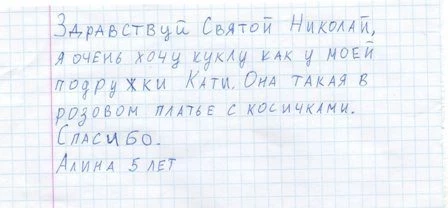 Здравствуй Святой Николай,
я очень хочу куклу как у моей
подружки Кати. Она такая в
розовом платье с косичками.
Спасибо.
Алина 5 лет